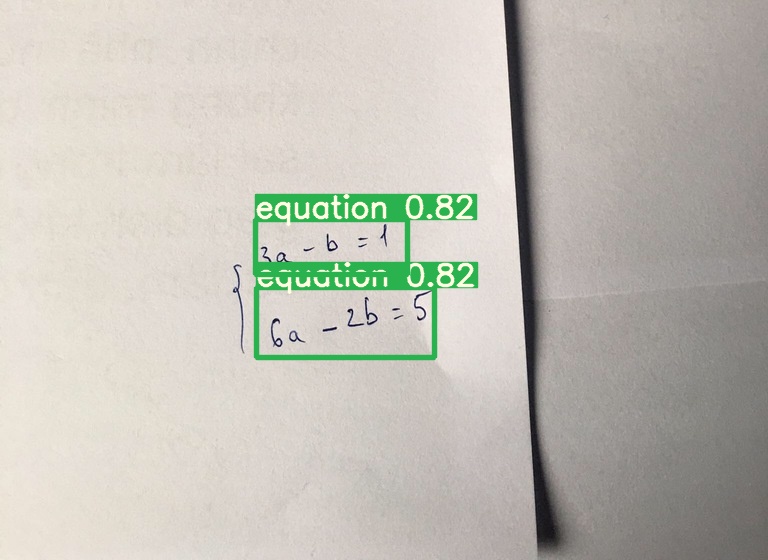 equation 0.82
3a - b = 1
equation 0.82
6a - 2b = 5